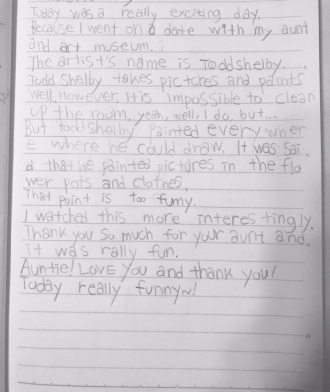 Today was a really exciting day.
Because I went on a date with my aunt
and art museum.
The artist's name is Toddshelby.
Todd Shelby takes pictures and paints
well, However, It is impossible to clean
up the room. yeah, well, I do, but...
But todd Shelby Painted every wher
e where he could draw. It was sai
d that he painted pictures in the flo
wer pots and clothes.
That point is too funny.
I watched this more interestingly.
Thank you so much for your aunt and.
it was rally fun.
Auntie! Love you and thank you!
Today really funny~!